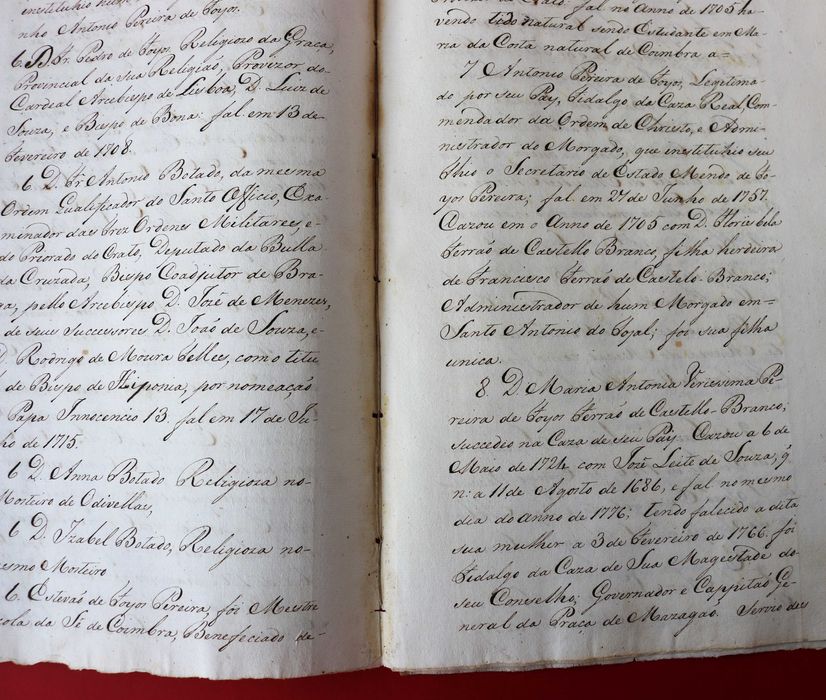 instituhio hum
nho Antonio Pereira de Foyos.
6. D Fr. Pedro de Foyos Religiozo da Graca,
Provincial da sua Religiaõ, Provizor do
Cardeal Arcebispo de Lisboa, D. Luiz de
Souza, e Bispo de Bona: fal. em 13 de
Fevereiro de 1708.
6 D. Fr. Antonio Botado, da mesma
Ordem Gualificador do Santo Officio, Exa-
minador das trez Ordenes Militares, e
do Priorado do Crato, Deputado da Bulla
da Cruzada, Bispo Coadjutor de Bra-
a, pello Arcebispo D. Jozé de Menezes,
de seus Successores D. Joaõ de Souza, e
D. Rodrigo de Moura Telles, com o titu
de Bispo de Hiponia, por nomeaçaõ
Papa Innocencio 13. fal em 17 de Ju-
ho de 1715.
6 D. Anna Botado Religioza no-
Mosteiro de Odivellas,
6 D. Izabel Botado, Religioza no-
esmo Mosteiro
6. Estevaõ de Foyos Pereira, foi Mestre
cola da Sé de Coimbra, Benefeciado de-
fal. no Anno de 1705 ha-
vendo tido natural sendo Estudante em Ma-
ria da Costa natural de Coimbra a=
7 Antonio Pereira de Foyos, Legitima-
do por seu Pay, Fidalgo da Caza Real, Com-
mendador da Ordem de Christo, e Adme-
nistrador do Morgado, que instituhio seu
Thio o Secretario de Estado Mendo de Fo-
yos Pereira; fal. em 27 de Junho de 1757.
Cazou em o Anno de 1705 com D. Floris bela
Ferraõ de Castello Branco, filha herdeira
de Francisco Ferraõ de Castelo-Branco;
Administrador de hum Morgado em=
Santo Antonio do Tojal; foi sua filha
unica.
8. D. Maria Antonia Verissima Pe-
reira de Foyos Ferraõ de Castello-Branco,
succedeo na Caza de seu Pay. Cazou a 6 de
Maio de 1724 com Jozé Leite de Souza, q̃
n: a 11 de Agosto de 1686, e fal no mesmo
dia do anno de 1776; tendo falecido a dita
sua mulher a 3 de Fevereiro de 1766. foi
Fidalgo da Caza de Sua Magestade do
seu Conselho; Governador e Cappitaõ Ge-
neral da Praça de Mazagaõ. Servio des